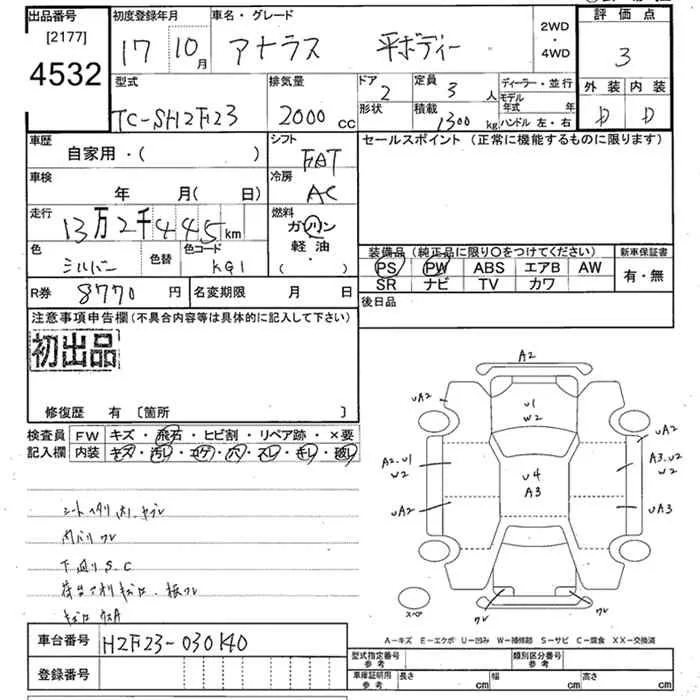 出品番号 初度登録年月 車名・グレード 2WD 評価点
[2177] 17 10月 アトラス 平ボディー ・ 3
4532 4WD
型式 排気量 ドア 定員 ディーラー・並行 外装 内装
TC-SH2F23 2000cc 2 3人 モデル年式 年 D D
形状 積載 1300kg ハンドル 左・右
車歴 シフト セールスポイント (正常に機能するものに限ります)
自家用・( ) FAT
車検 冷房
年 月( 日) AC
走行 燃料
13万2千445km ガソリン
色 色替 色コード 軽油・ 装備品 (純正品に限り○をつけてください) 新車保証書
シルバー KG1 ( ) PS PW ABS エアB AW 有・無
SR ナビ TV カワ
R券 8770円 名変期限 月 日 後日品
注意事項申告欄(不具合内容等は具体的に記入して下さい)
初出品
修復歴 有 〔箇所 〕
検査員 FW キズ・飛石・ヒビ割・リペア跡・×要
記入欄 内装 キズ・汚レ・コゲ・穴・スレ・キレ・破レ
シートヘタリ
内バリ ワレ
下廻り S.C
A2
UA2
U1
W2
UA2
A2.U1
W2
A3.U2
W2
U4
A3
UA2
UA3
ワレ
ワレ
スペア
A-キズ E-エクボ U-凹み W-補修跡 S-サビ C-腐食 XX-交換済
車台番号 H2F23-030140
登録番号
型式指定番号 参考 類別区分番号 参考
車庫証明用 参考 長さ cm 幅 cm 高さ cm